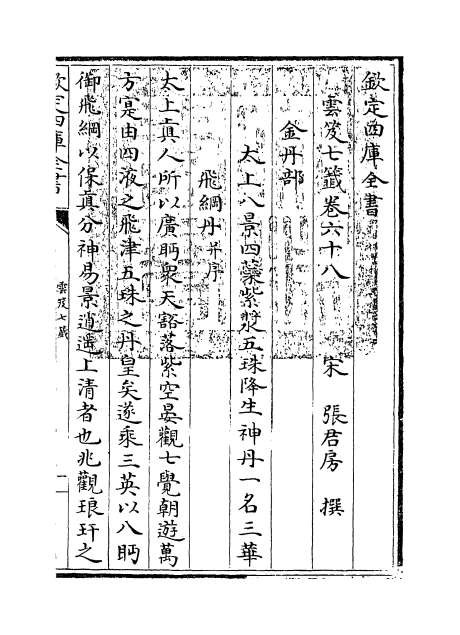 欽定四庫全書
雲笈七籤卷六十八
宋 張君房 撰
金丹部
太上八景四蘂紫漿五珠降生神丹一名三華
飛綱丹并序
太上真人所以廣眄衆天豁落紫空晏觀七覺朝遊萬
方寔由四液之飛津五珠之丹皇矣遂乘三英以八眄
御飛綱以保真分神易景逍遥上清者也兆觀琅玕之
欽定四庫全書
雲笈七籤
一